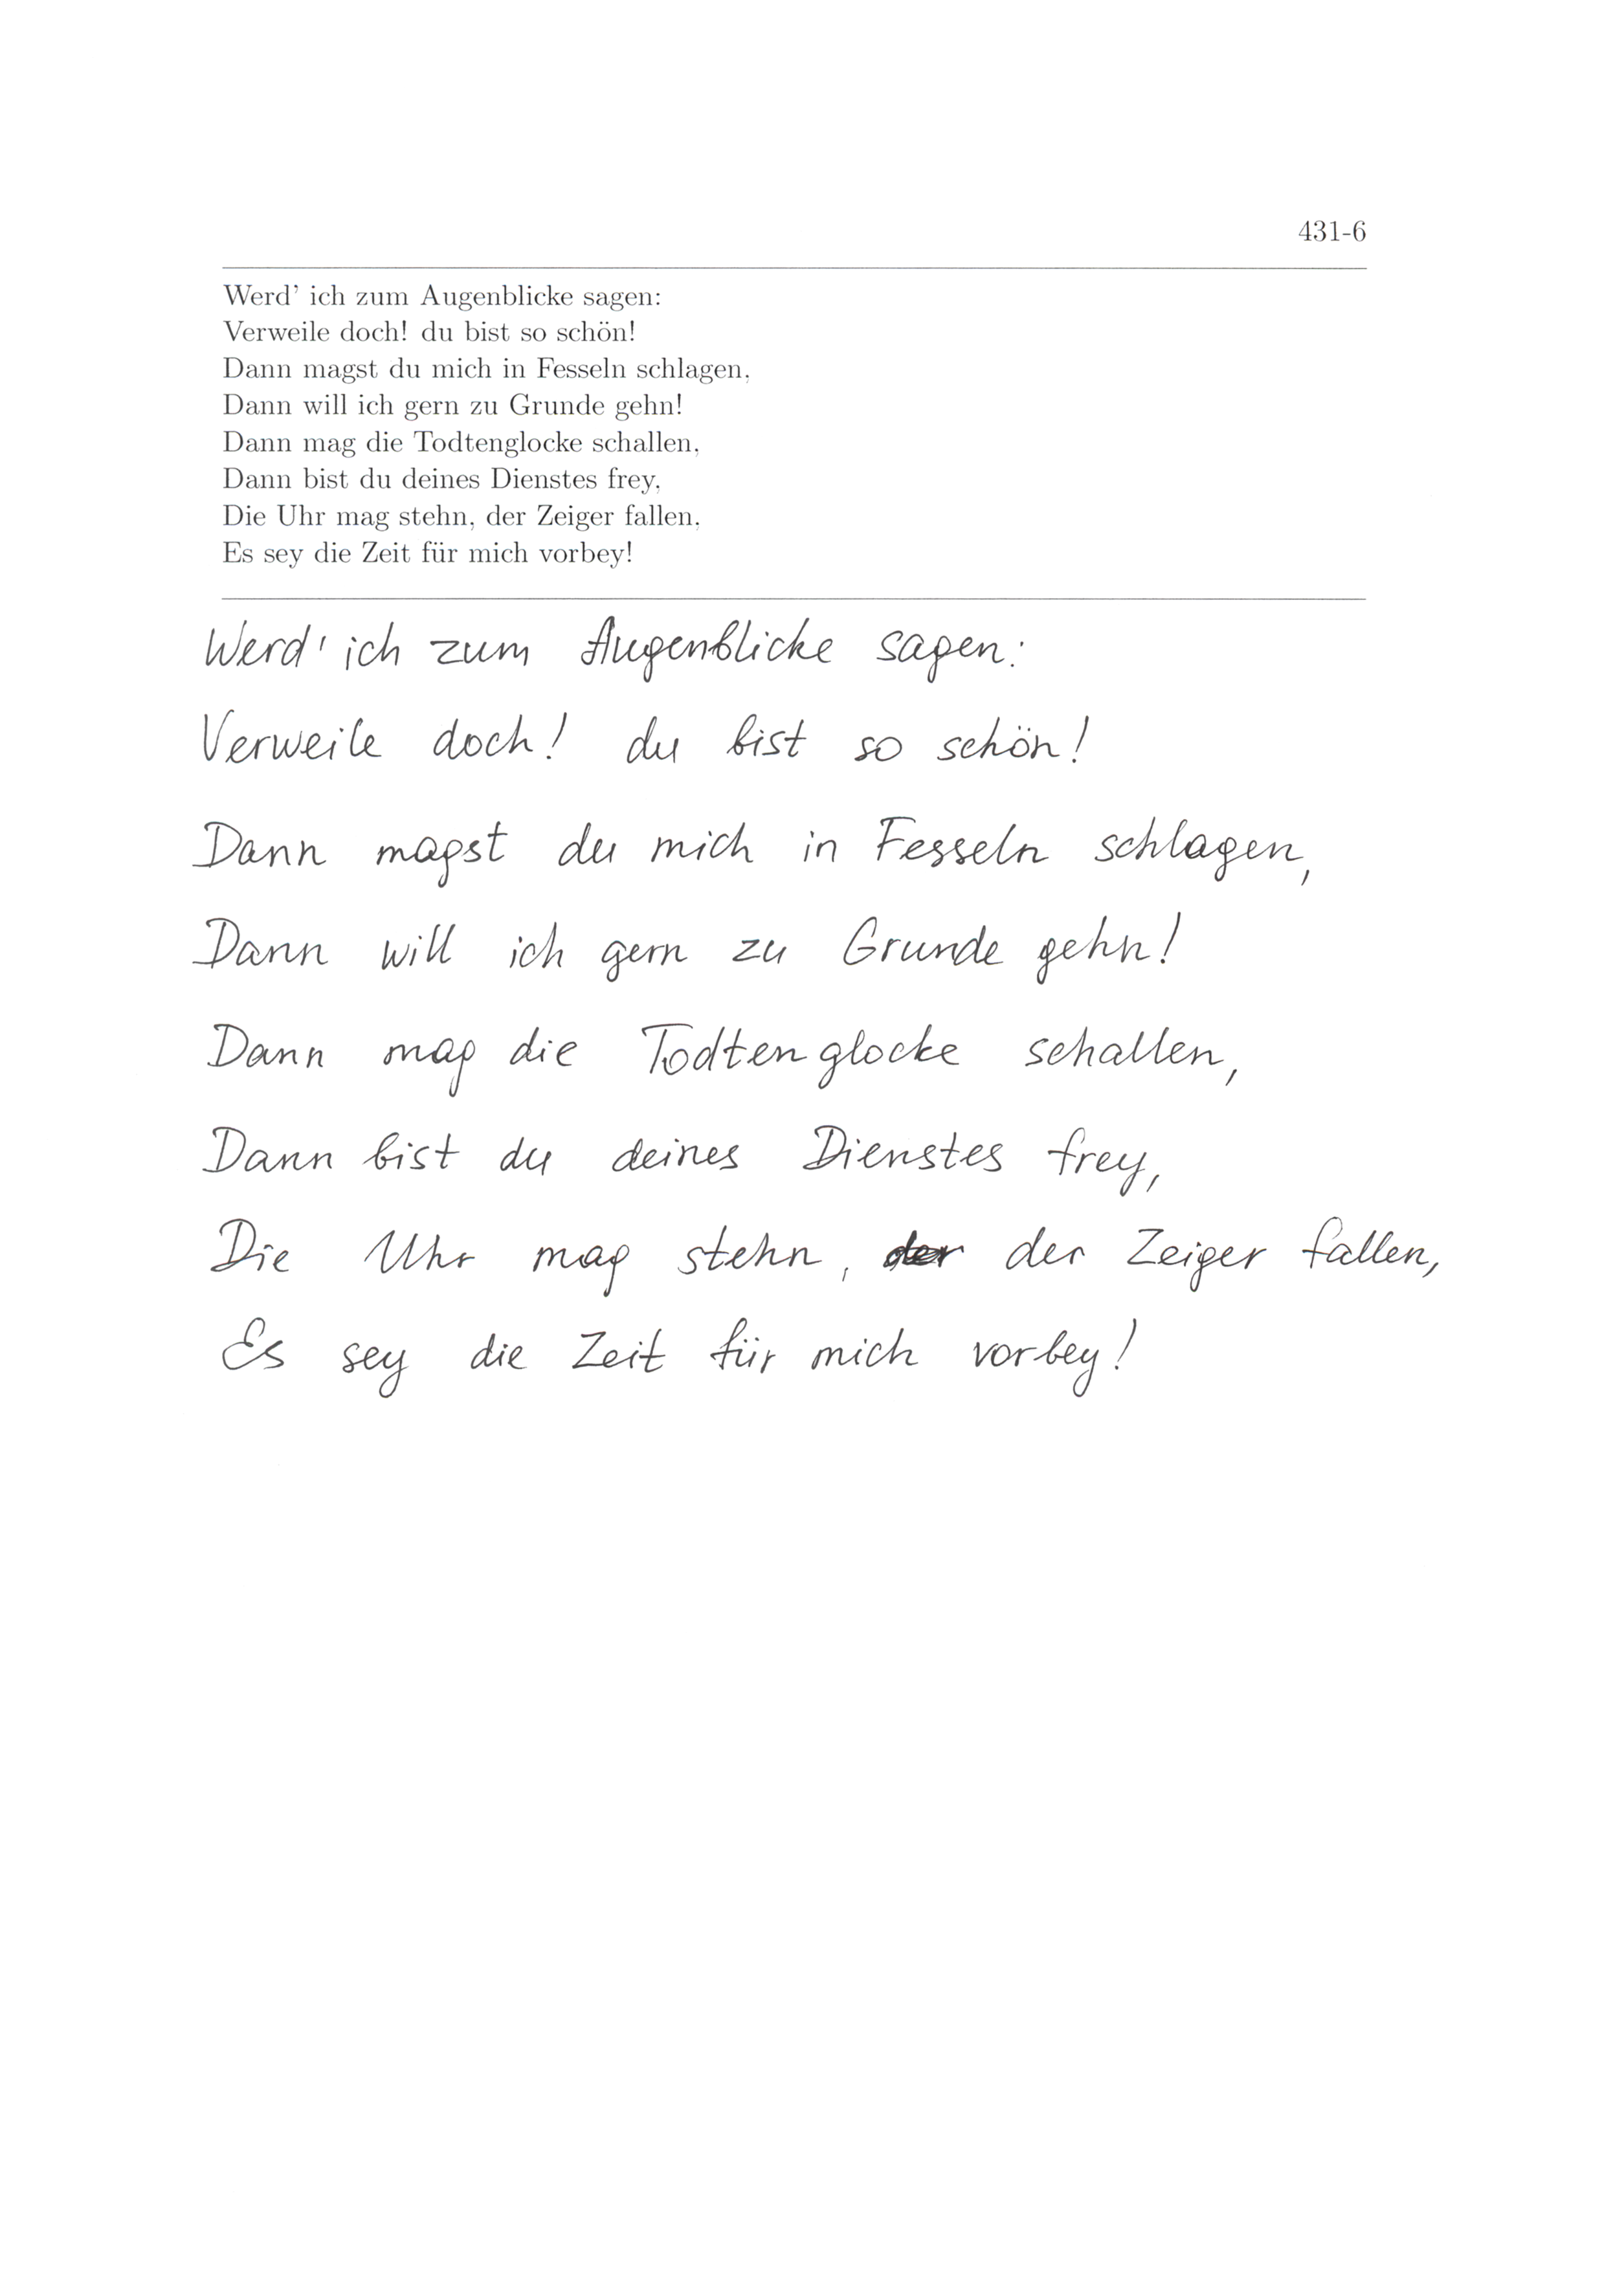 431-6
Werd' ich zum Augenblicke sagen:
Verweile doch! du bist so schön!
Dann magst du mich in Fesseln schlagen,
Dann will ich gern zu Grunde gehn!
Dann mag die Todtenglocke schallen,
Dann bist du deines Dienstes frey,
Die Uhr mag stehn, der Zeiger fallen,
Es sey die Zeit für mich vorbey!
Werd' ich zum Augenblicke sagen:
Verweile doch! du bist so schön!
Dann magst du mich in Fesseln schlagen,
Dann will ich gern zu Grunde gehn!
Dann mag die Todtenglocke schallen,
Dann bist du deines Dienstes frey,
Die Uhr mag stehn, der der Zeiger fallen,
Es sey die Zeit für mich vorbey!